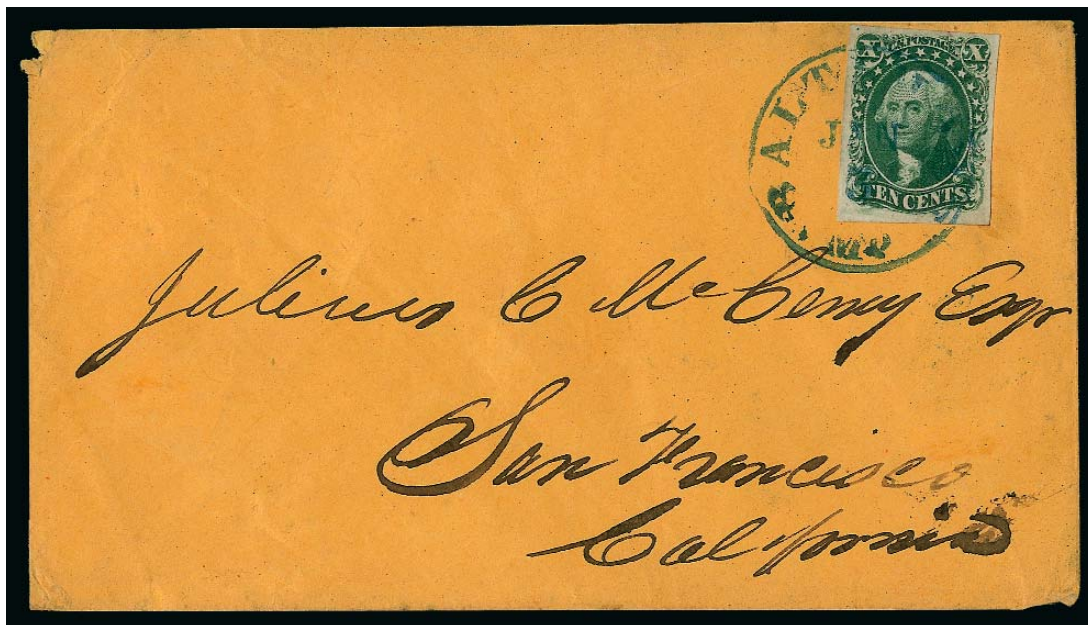 X U.S. POSTAGE X
BALT
J
TEN CENTS
Md
Julius C McCeny Esqr
San Francisco
California